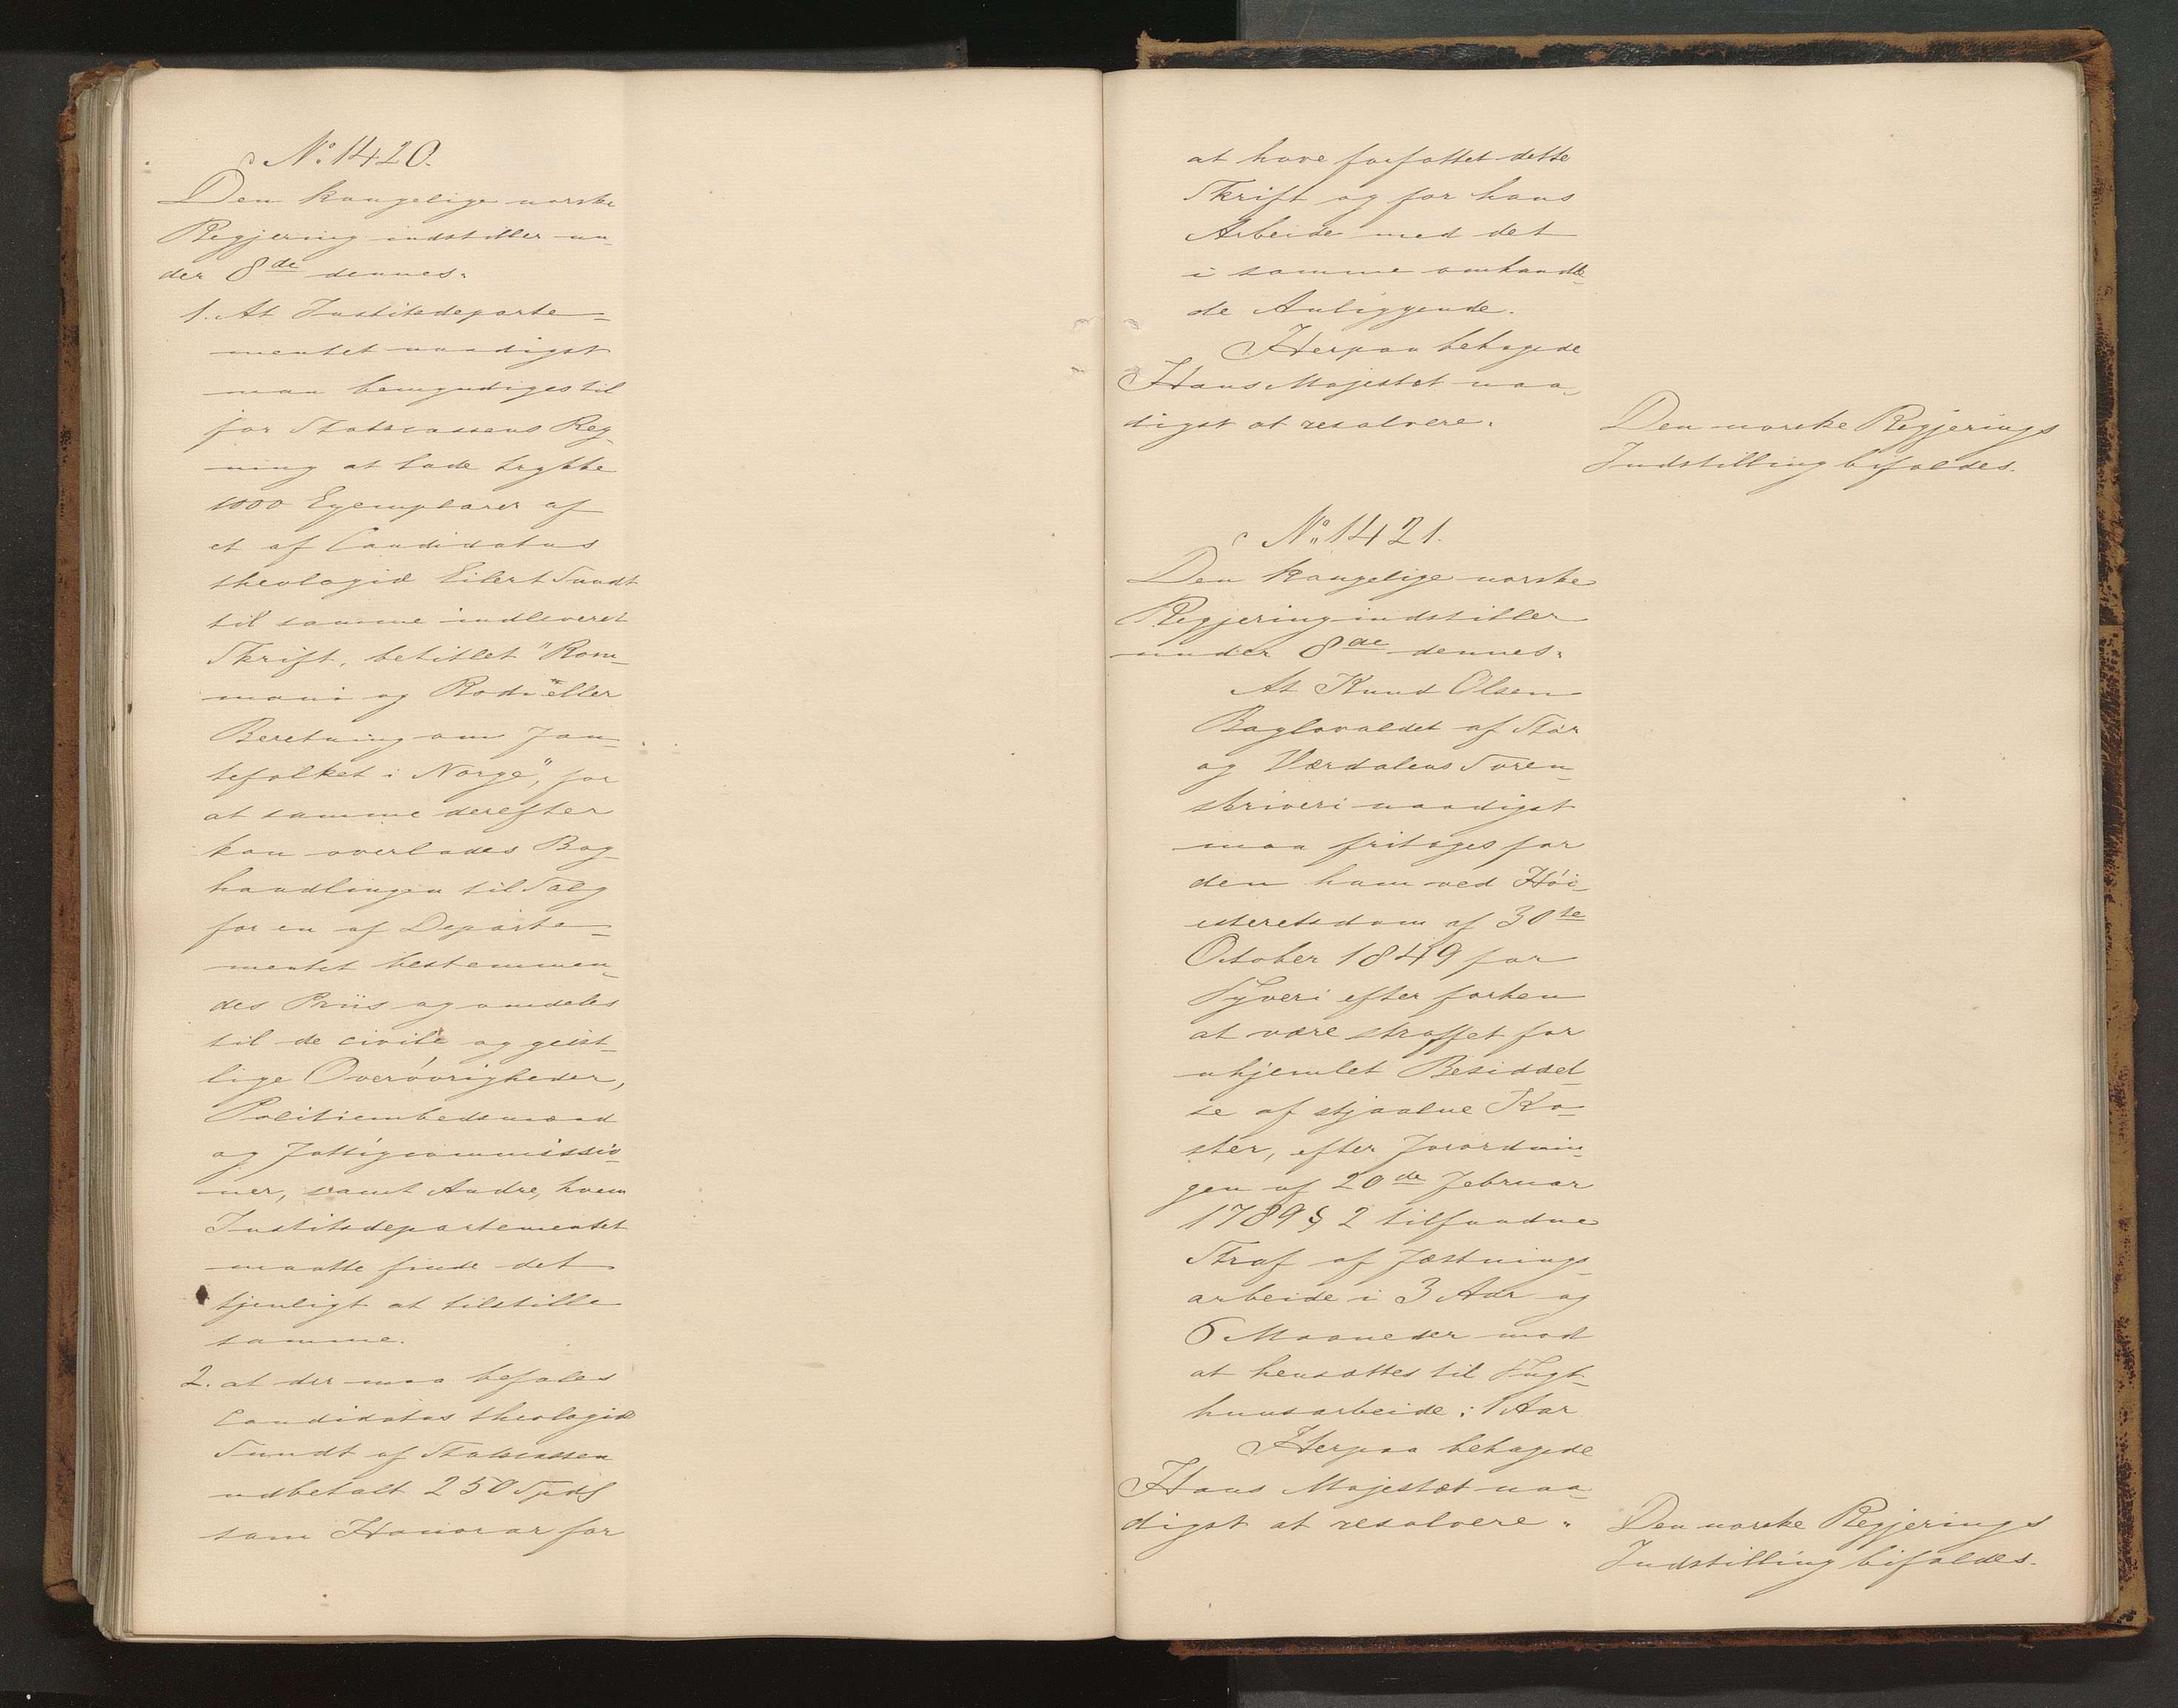 No. 1420.
Den kongelige norske
Regjering indstiller un-
der 8de dennes:
1. At Justitsdeparte-
mentet naadigst
maa bemyndiges til
for Statscassens Reg-
ning at lade trykke
1000 Exemplarer af
et af Candidatus
theologiæ Eilert Sundt
til samme indleveret
Skrift, betitlet "Rom-
mani og Rodi" eller
Beretning om Fan-
tefolket i Norge", for
at samme derefter
kan overlades Bog-
handlingen til Salg
for en af Departe-
mentet bestemmen-
des Priis og omdeles
til de civile og geist-
lige Overøvrigheder,
Politiembedsmænd
og Fattigcommissio-
ner, samt Andre, hvem
Justitsdepartementet
maatte finde det
tjenligt at tilstille
samme.
2. at der maa befales
Candidatus theologiæ
Sundt af Statscassen
udbetalt 250 Spds
som Honorar for
at have forfattet dette
Skrift og for hans
Arbeide med det
i samme omhandle-
de Anliggende.
Herpaa behagede
Hans Majestæt naa-
digst at resolvere:
Den norske Regjerings
Indstilling bifaldes.
No. 1421.
Den kongelige norske
Regjering indstiller
under 8de dennes:
At Knud Olsen
Baglovaldet af Stør
og Værdalens Soren-
skriveri naadigst
maa fritages for
den ham ved Høi-
esteretsdom af 30te
October 1849 for
Tyveri efter forhen
at være straffet for
uhjemlet Besiddel-
se af stjaalne Ko-
ster, efter Forordnin-
gen af 20de Februar
1789 § 2 tilfundne
Straf af Fæstnings-
arbeide i 3 Aar og
6 Maaneder mod
at hensættes til Tugt-
huusarbeide i 1 Aar
Herpaa behagede
Hans Majestæt naa-
digst at resolvere:
Den norske Regjerings
Indstilling bifaldes.